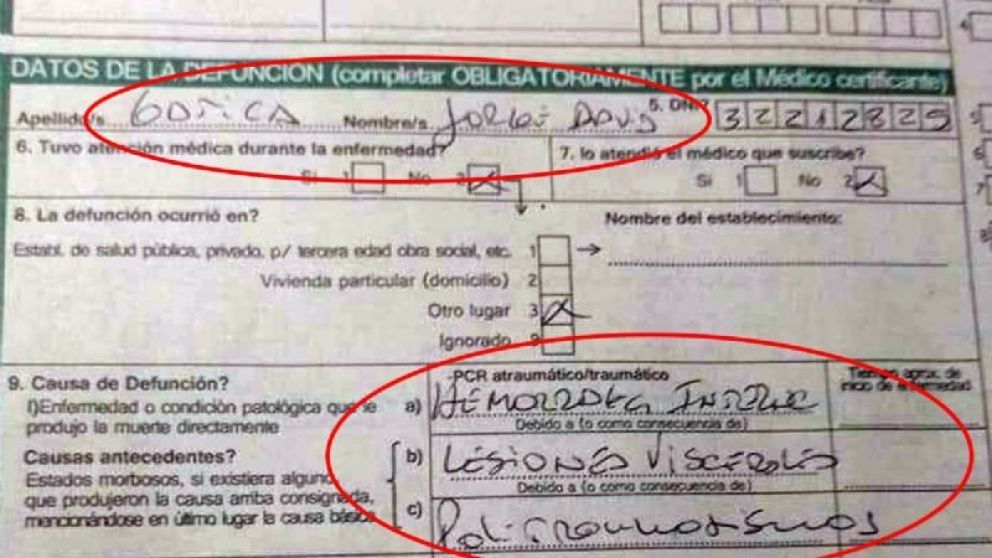 DATOS DE LA DEFUNCION (completar OBLIGATORIAMENTE por el Médico certificante)
Apellido/s GODICA Nombre/s JORGE DAVID 5. DNI? 32212829
6. Tuvo atención médica durante la enfermedad? 7. lo atendió el médico que suscribe?
Si 1 No 2 X Si 1 No 2 X
8. La defunción ocurrió en? Nombre del establecimiento:
Establ. de salud pública, privado, p/ tercera edad obra social, etc. 1
Vivienda particular (domicilio) 2
Otro lugar 3 X
Ignorado 9
9. Causa de Defunción? PCR atraumático/traumático Tiempo aprox. de
I) Enfermedad o condición patológica que le a) HEMORRAGIA INTERNA inicio de enfermedad
produjo la muerte directamente Debido a (o como consecuencia de)
Causas antecedentes? b) LESIONES VISCERALES
Estados morbosos, si existiera alguno, Debido a (o como consecuencia de)
que produjeron la causa arriba consignada, c) Politraumatismos
mencionándose en último lugar la causa básica